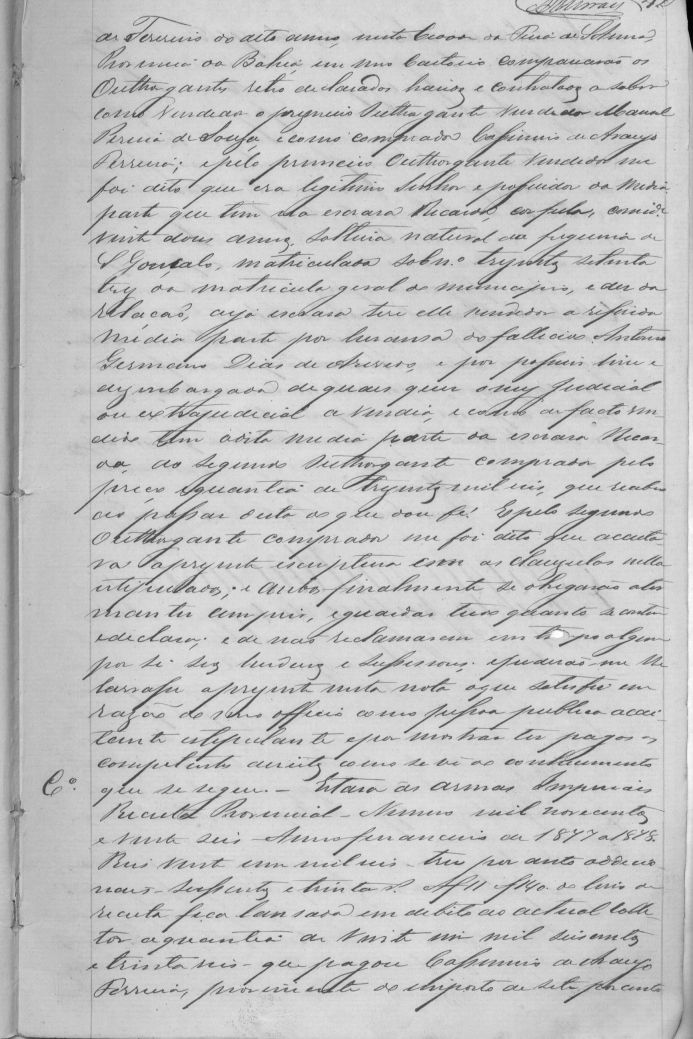 de Fevereiro do dito anno, nesta Cidade da Feira de
Provincia da Bahia em meu Cartorio comparecerão os
Outhorgantes retro declarados havos e contratados a saber
como Vendedor o primeiro Outhorgante Vendedor Manoel
Pereira de Souza e como comprador Casimiro de Araujo
Ferreira; e pelo primeiro Outhorgante Vendedor me
foi dito que era legitimo Senhor e possuidor da media
parte que tem na escrava Ricarda cor fula, com id.e
vinte dous annos, solteira natural da freguesia de
S. Gonsalo, matriculada sob n.o trezentos setenta
trez da matricula geral do municipio, e dez da
relação, cuja escrava teve elle vendedor a referida
media parte por heransa do fallecido Antonio
Germano Dias de e por possuir livre e
dezembargada de quaes quer onus Judicial
ou extrajudicial a vendia, e como de facto ven
dido tem a dita media parte da escrava Ricar
da, ao segundo Outhorgante comprador pelo
preço e quantia de trezentos mil reis, que recebeu
ao passar desta do que dou fé. E pelo segundo
Outhorgante comprador me foi dito que aceita
va a prezente escriptura com as clauzulas nella
estipuladas; e ambos finalmente se obrigarão a ter
manter cumprir, e guardar tudo quanto se contem
e declara; e de não reclamarem em tempo algum
por si seus herdeiros e sussessores. e pedirão-me lhe
lavrasse a prezente nesta nota o que satisfis em
razão do meu officio como pessoa publica acei
tante estipulante e por mostrar ter pagos os
competentes direitos como se vê do conhecimento
C.o que se segue. - Estava as Armas Imperiais
Receita Provincial - Numero mil novecentos
e vinte seis - Anno financeiro de 1877 a 1878.
Reis vinte um mil reis - trez por cento addicio
naes - seiscentos e trinta r.s Af 11 f 140 do livro de
receita fica lansada em debito ao actual Colle
tor a quantia de vinte um mil seiscentos
e trinta reis - que pagou Casimiro de Araujo
Ferreira, proveniente do imposto de sete por cento